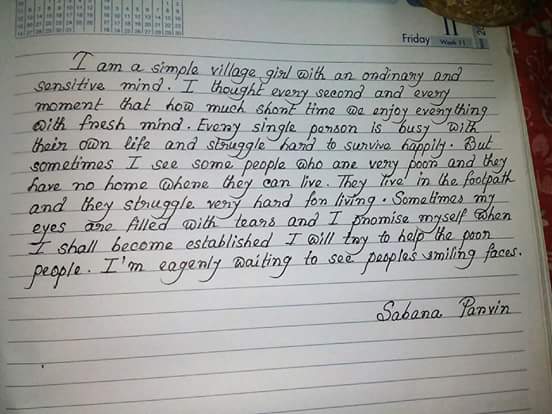 Friday
11
Week 11
I am a simple village girl with an ordinary and
sensitive mind. I thought every second and every
moment that how much short time we enjoy everything
with fresh mind. Every single person is busy with
their own life and struggle hard to survive happily. But
sometimes I see some people who are very poor and they
have no home where they can live. They live in the footpath
and they struggle very hard for living. Sometimes my
eyes are filled with tears and I promise myself when
I shall become established I will try to help the poor
people. I'm eagerly waiting to see peoples smiling faces.
Sabana Parvin